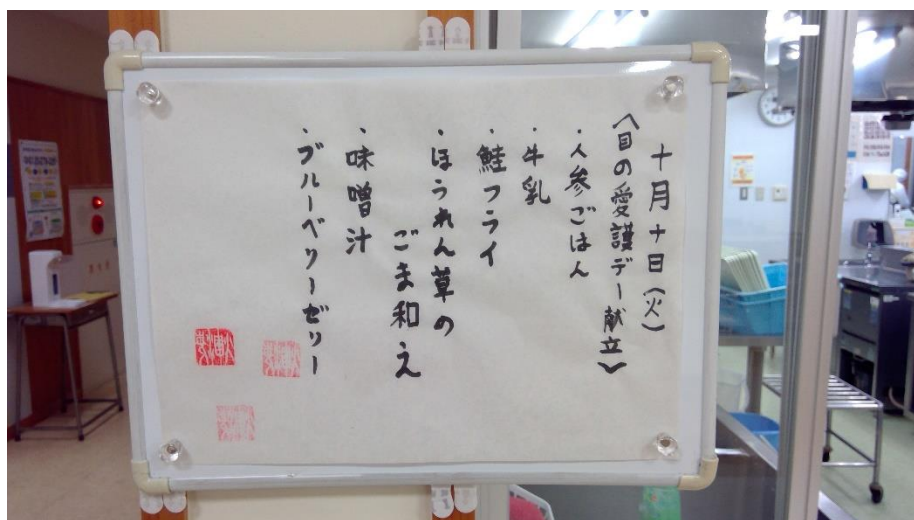 十月十日(火)
〈目の愛護デー献立〉
・人参ごはん
・牛乳
・鮭フライ
・ほうれん草の
ごま和え
・味噌汁
・ブルーベリーゼリー